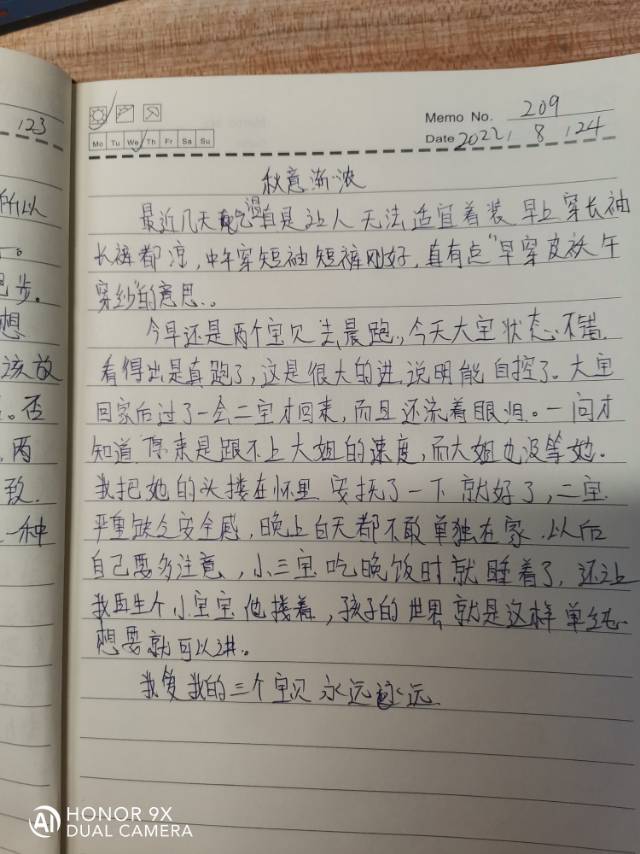 123
所以
起步。
想
该放
。否
两
致
一种
Memo No. 209
Mo Tu We Th Fr Sa Su
Date 2022 / 8 / 24
秋意渐浓
最近几天气温真是让人无法适宜着装早上穿长袖
长裤都凉，中午穿短袖短裤刚好，真有点“早穿皮袄午
穿纱”的意思。
今早还是两个宝贝去晨跑，今天大宝状态不错，
看得出是真跑了，这是很大的进，说明能自控了。大宝
回家后过了一会二宝才回来，而且还流着眼泪。一问才
知道原来是跟不上大姐的速度，而大姐也没等她。
我把她的头搂在怀里安抚了一下就好了，二宝
严重缺乏安全感，晚上白天都不敢单独在家，以后
自己要多注意，小三宝吃晚饭时就睡着了，还让
我再生个小宝宝他搂着，孩子的世界就是这样单纯
想要就可以讲。
我爱我的三个宝贝永远永远
HONOR 9X
DUAL CAMERA